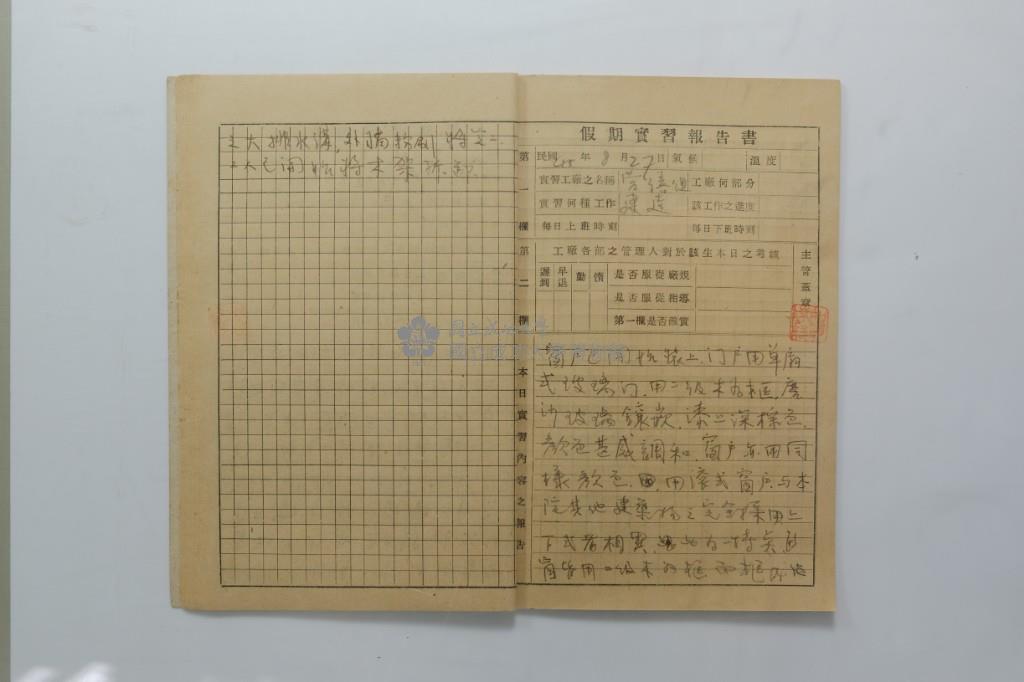 假期實習報告書
第一欄
民國 年 8 月 27 日 氣候
溫度
實習工廠之名稱
工廠何部分
實習何種工作 建造
該工作之進度
每日上班時刻
每日下班時刻
第二欄
工廠各部之管理人對於該生本日之考核
遲到 早退 勤 惰
是否服從廠規
是否服從指導
第一欄是否確實
主管蓋章
本日實習內容之報告
窗戶已開始裝上，门戶用單扇
式玻璃门，用二级木為框，磨
沙玻璃鑲嵌，漆以深棕色，
顏色甚感調和，窗戶亦用同
樣顏色，用 式窗戶，与本
院其他建築物之完全採用上
下式者相異， 為一特 點
窗皆用 级木為框 框
之大排水溝，外墻 將
已開始將木架拆卸